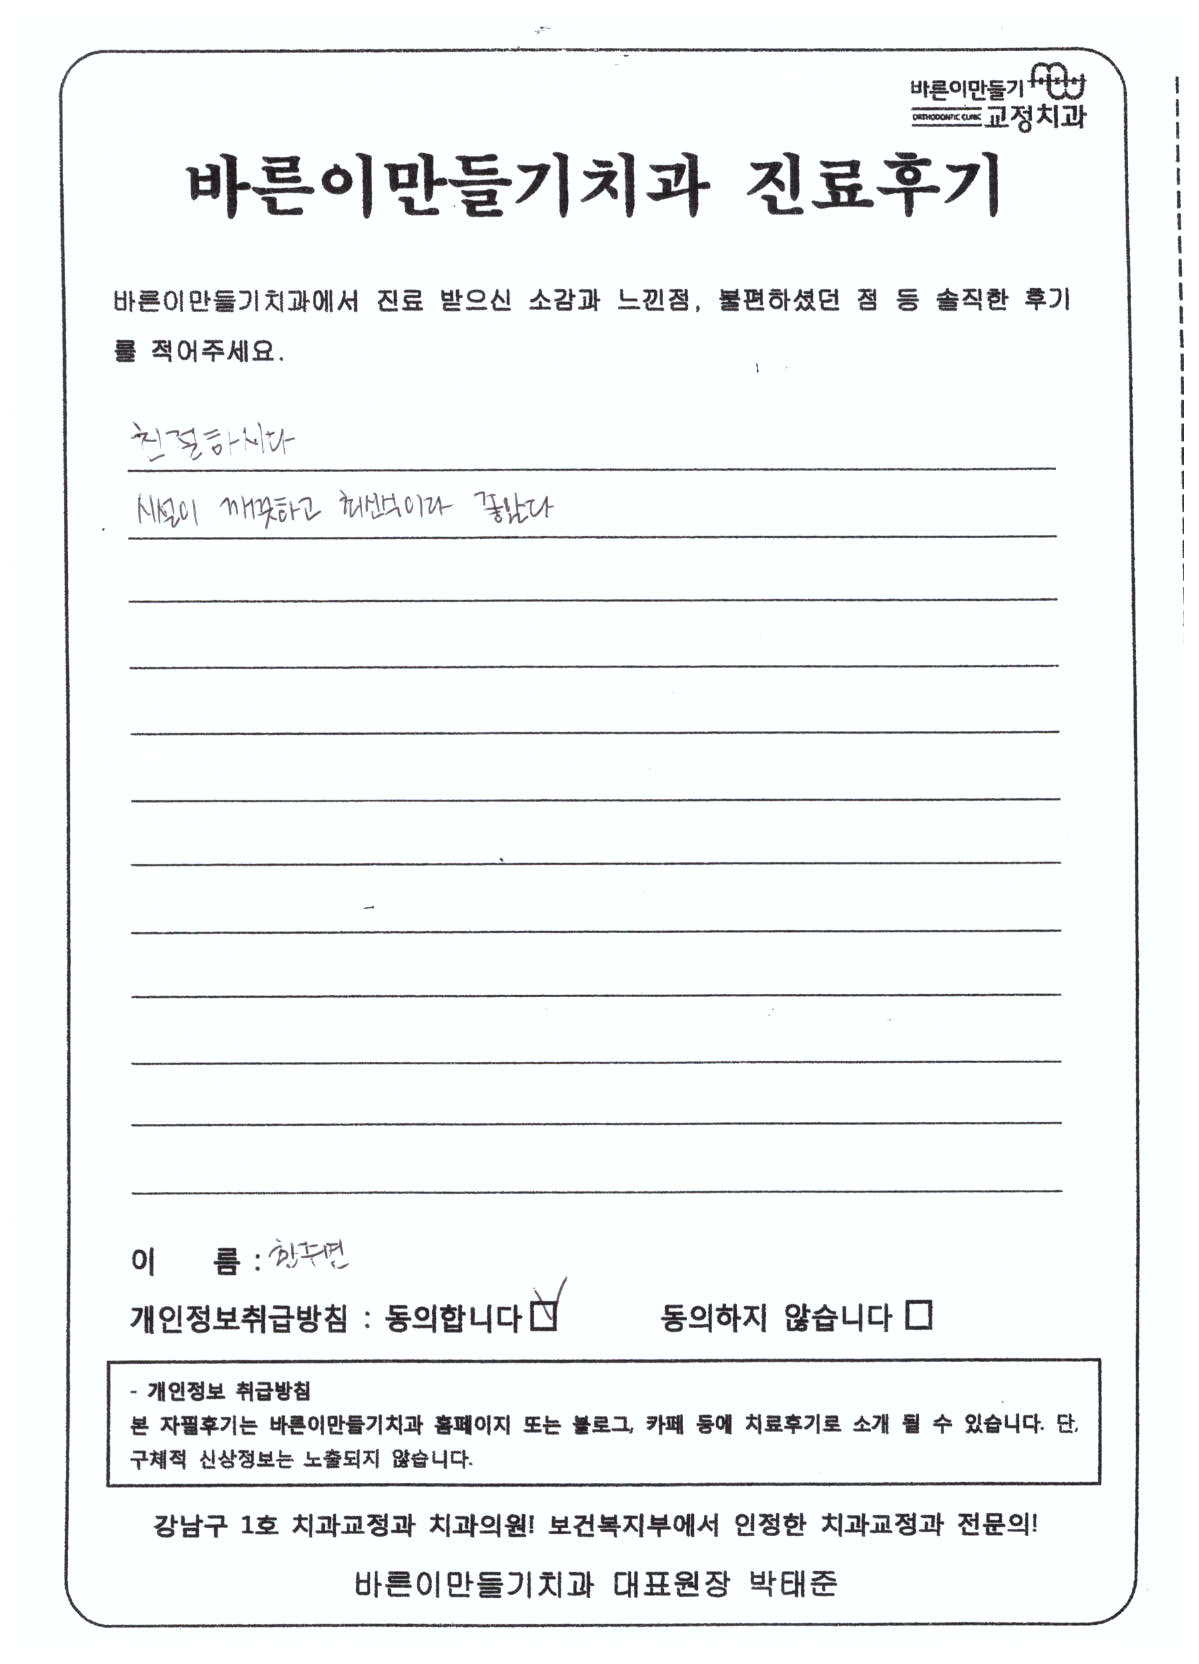 바른이만들기
ORTHODONTIC CLINIC 교정치과
바른이만들기치과 진료후기
바른이만들기치과에서 진료 받으신 소감과 느낀점, 불편하셨던 점 등 솔직한 후기
를 적어주세요.
친절하시다
시설이 깨끗하고 최신식이라 좋았다
이 름 :
개인정보취급방침 : 동의합니다 동의하지 않습니다
- 개인정보 취급방침
본 자필후기는 바른이만들기치과 홈페이지 또는 블로그, 카페 등에 치료후기로 소개 될 수 있습니다. 단,
구체적 신상정보는 노출되지 않습니다.
강남구 1호 치과교정과 치과의원! 보건복지부에서 인정한 치과교정과 전문의!
바른이만들기치과 대표원장 박태준